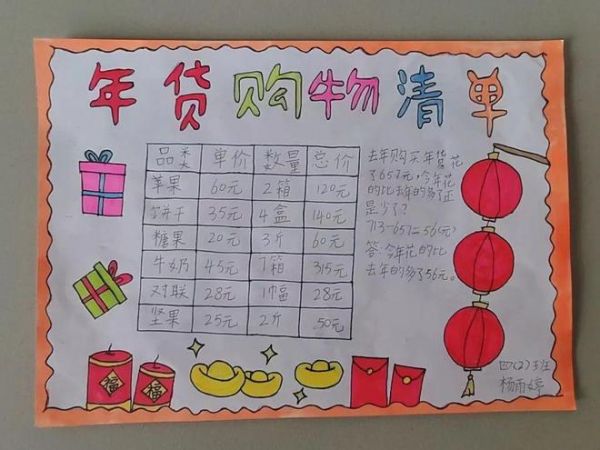 年货购物清单
品类 单价 数量 总价
苹果 60元 2箱 120元
饼干 35元 4盒 140元
糖果 20元 3斤 60元
牛奶 45元 7箱 315元
对联 28元 1幅 28元
坚果 25元 2斤 50元
去年购买年货花
了657元,今年花
的比去年的多了还
是少了?
713-657=56(元)
答:今年花的比
去年的多了56元。
福 福
四(2)班
杨雨婷